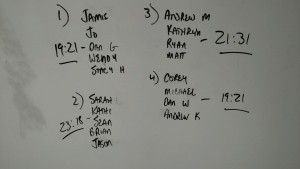 1) JAMIE
JO
19:21 - DAN G
WENDY
STACY H
2) SARAH
KATHY
23:18 - SEAN
BRIAN
JASON
3) ANDREW M
KATHRYN
RYAN - 21:31
MATT
4) COREY
MICHAEL
DAN W - 19:21
ANDREW K